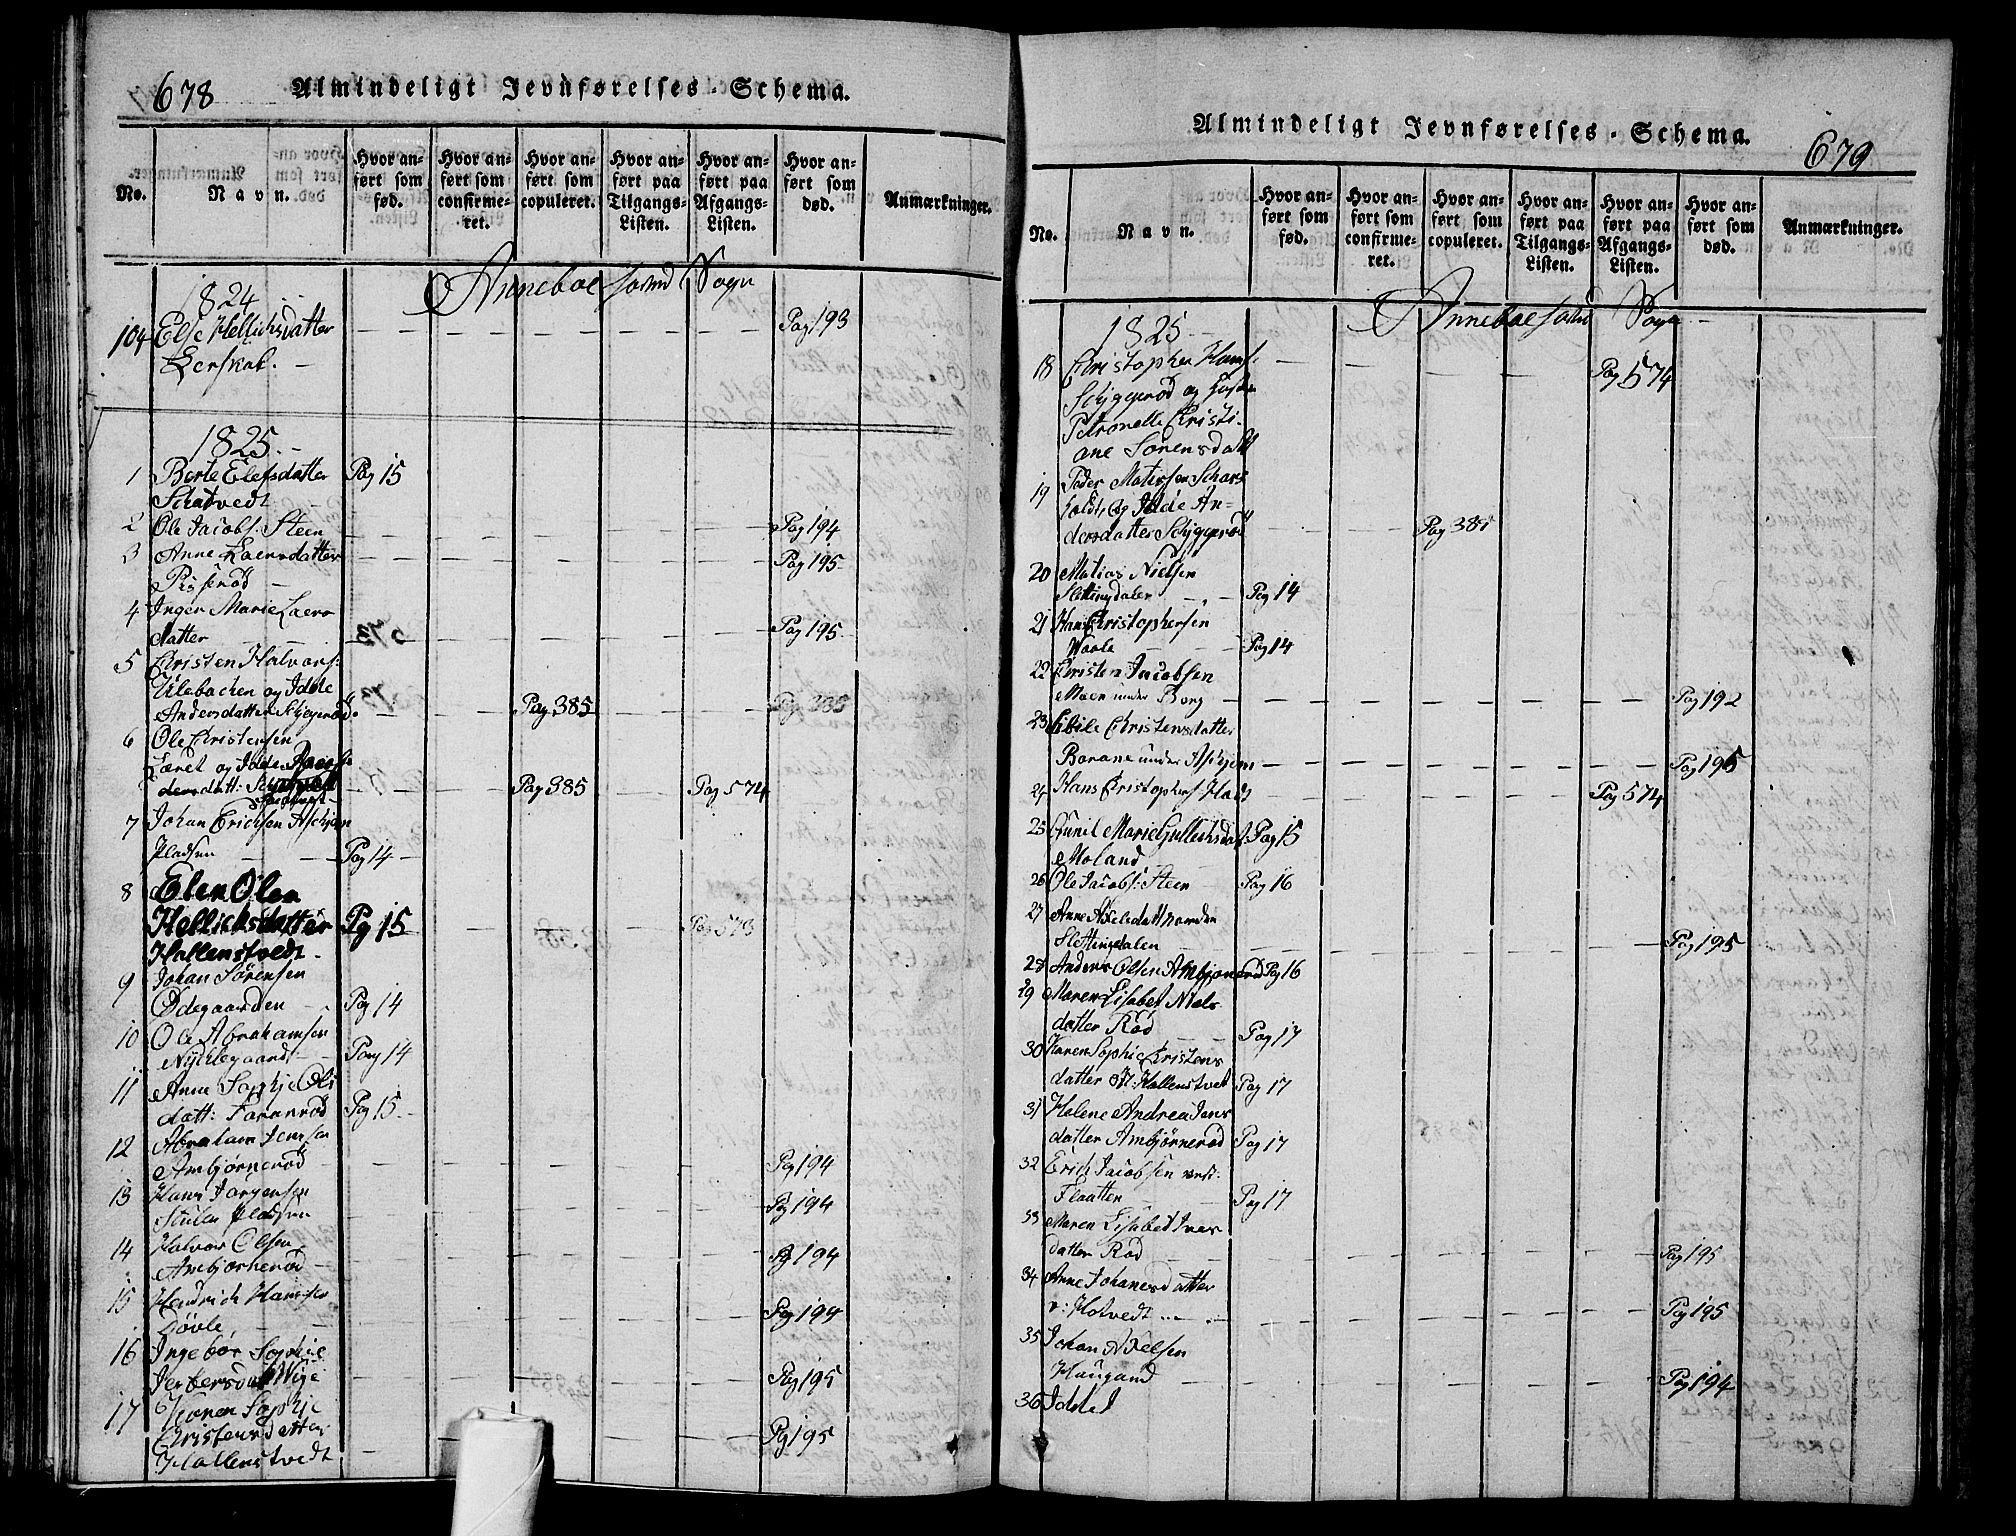 678 Almindeligt Jevnførelses-Schema.
No. Navn. Hvor anført som fød. Hvor anført som confirmeret. Hvor anført som copuleret. Hvor anført paa Tilgangs-Listen. Hvor anført paa Afgangs-Listen. Hvor anført som død. Anmærkninger.
Anneboe Sogn
1824
104 Else Hellichsdatter Pag 193
Lerskal.
1825.
1 Berte Elefsdatter Pag 15
Schatvedt
2 Ole Jacobs: Steen Pag 194
3 Anne Laersdatter Pag 195
4 Inger Marie Laers
datter Pag 195
5 Christen Halvors:
Ulebachen og Idde
Andersdatter Pag 385 Pag 385
6 Ole Christensen
og Idde
dersdatt: Pag 385 Pag 574
7 Johan Erichsen Aschjem
Pladsen Pag 14
8 Elen Olea
Hellichsdatter Pg 15 Pag 573
Hallenstvedt
9 Johan Sørensen
Ødegaarden Pag 14
10 Ole Abrahamsen
Nyklegaard Pag 14
11 Anne Sophje Ols
datt: Pag 15
12 Abraham Jensen
Ambjørnerød Pag 194
13 Hans Jørgensen
Pladsen Pag 194
14 Halvor Olsen
Ambjørnerød Pg 194
15 Hendrich Hansen
Pag 194
16 Ingebor Sophie
Pag 195
17 Karen Sophje
Christensdatter Pag 195
Hallenstvedt
Almindeligt Jevnførelses-Schema. 679
No. Navn. Hvor anført som fød. Hvor anført som confirmeret. Hvor anført som copuleret. Hvor anført paa Tilgangs-Listen. Hvor anført paa Afgangs-Listen. Hvor anført som død. Anmærkninger.
Anneboe Sogn
1825
18 Christopher Hans: Pag 574
Schjggerød og
Petronelle Christi-
ane Sørensdatt
19 Peder Matissen
og Idde An-
dersdatter Schjggerød Pag 385
20 Matias Nielsen
Slettingdalen Pag 14
21 Hans Christophersen
Vaale Pag 14
22 Christen Jacobsen
Moen under Borg Pag 192
23 Christensdatter
under Aschjem Pag 195
24 Hans Christophers: Pag 574
25 Gunil Marie Pag 15
Moland
26 Ole Jacobs: Steen Pag 16
27 Anne
Slettingdalen Pag 195
28 Anders Olsen Ambjønerød Pag 16
29 Maren Lisabet Niels
datter Rød Pag 17
30 Karen Sophie Christens
datter Hallenstvet Pag 17
31 Helene Andrea Jens
datter Ambjørnerød Pag 17
32 Erich Jacobsen
Flaatten Pag 17
33 Maren Lisabet Ivers
datter Rød Pag 195
34 Anne Johanesdatter
Hotvedt Pag 195
35 Johan Axelsen
Haugand Pag 194
36